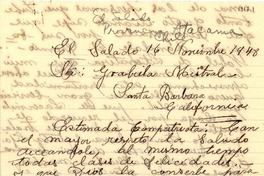 Salado
Provincia Atacama
Chile
El Salado 16 Noviembre 1948
Sta: Grabiela Mistral
Santa Barbara
California
Estimada Compatriota: Con
el mayor respeto la Saludo
deceandole al mismo tiempo
toda clase de felicidades
y que Dios la conserbe para